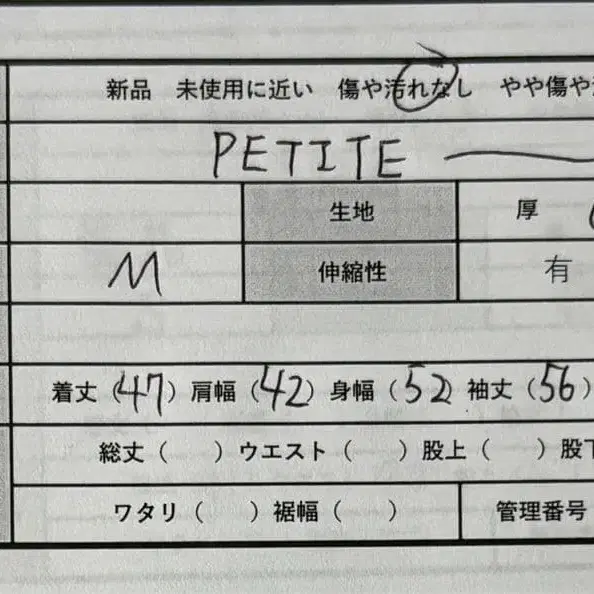 新品 未使用に近い 傷や汚れなし やや傷や
PETITE
生地 厚
M 伸縮性 有
着丈(47) 肩幅(42) 身幅(52 袖丈(56)
総丈( ) ウエスト( ) 股上( ) 股下
ワタリ( ) 裾幅( ) 管理番号